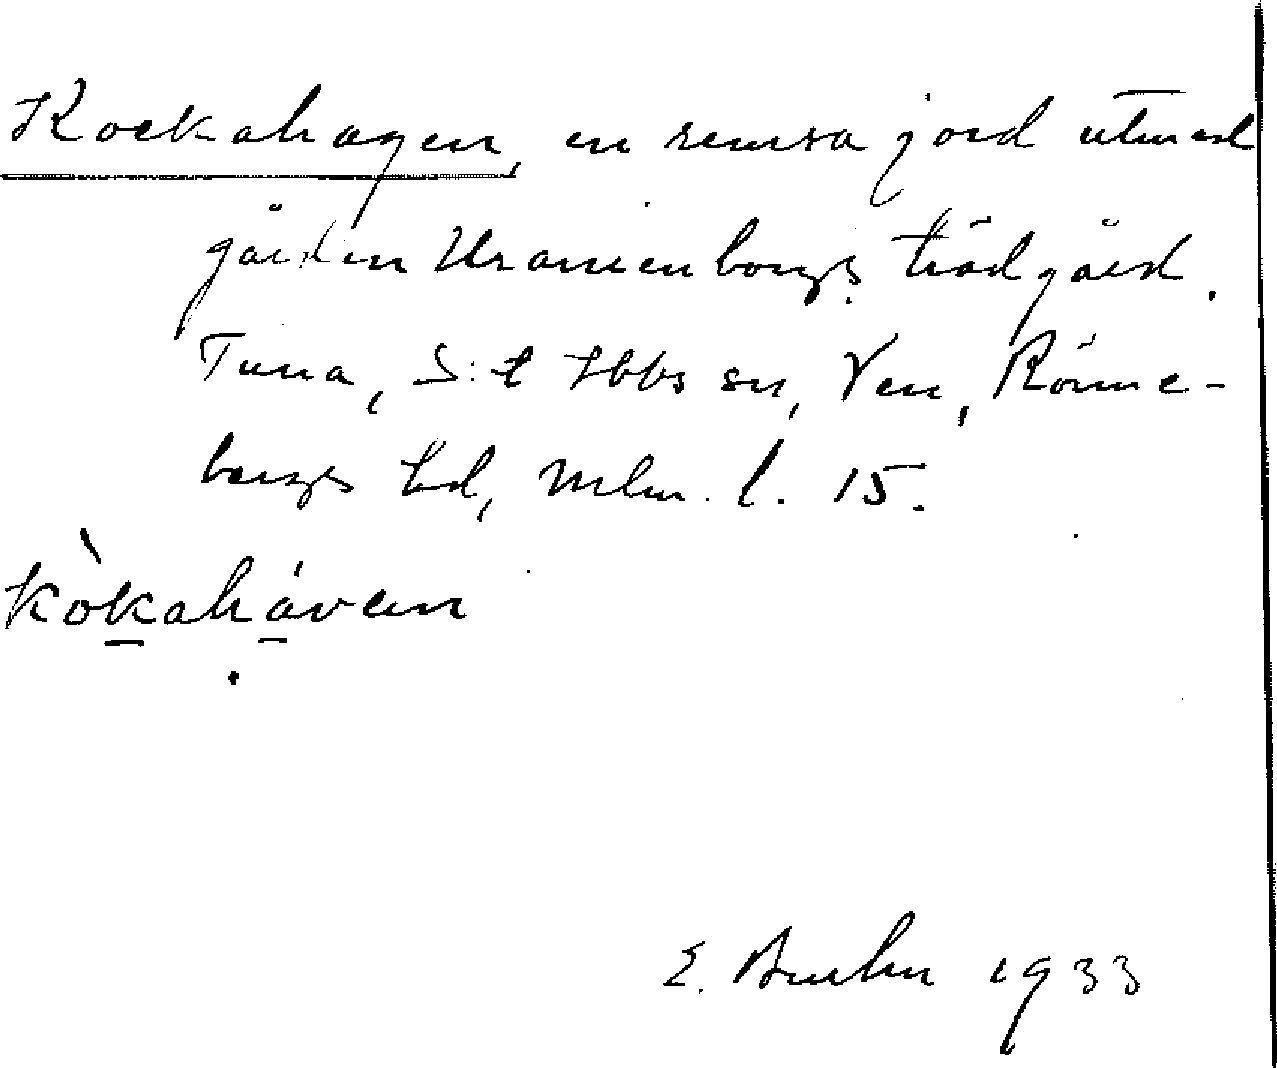 Kockahagen, en remsa jord utmed
gården Uranienborgs trädgård.
Tuna, S:t Ibbs sn, Ven, Rönne-
bergs hd, Mlm. l. 15.
kòkahåven
E. Bruhn 1933